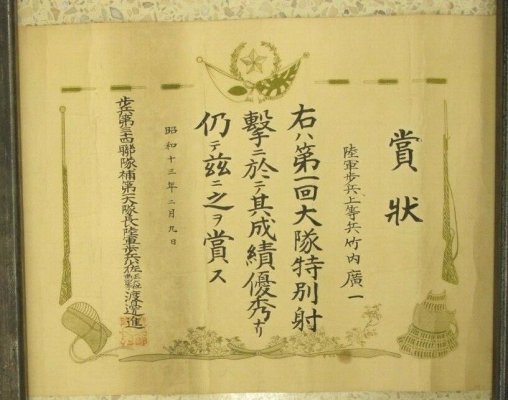 賞状
陸軍歩兵上等兵竹内廣一
右ハ第一回大隊特別射
撃ニ於テ其成績優秀ナリ
仍テ茲ニ之ヲ賞ス
昭和十三年二月九日
歩兵第三十四聯隊補第一大隊長陸軍歩兵少佐渡邊進